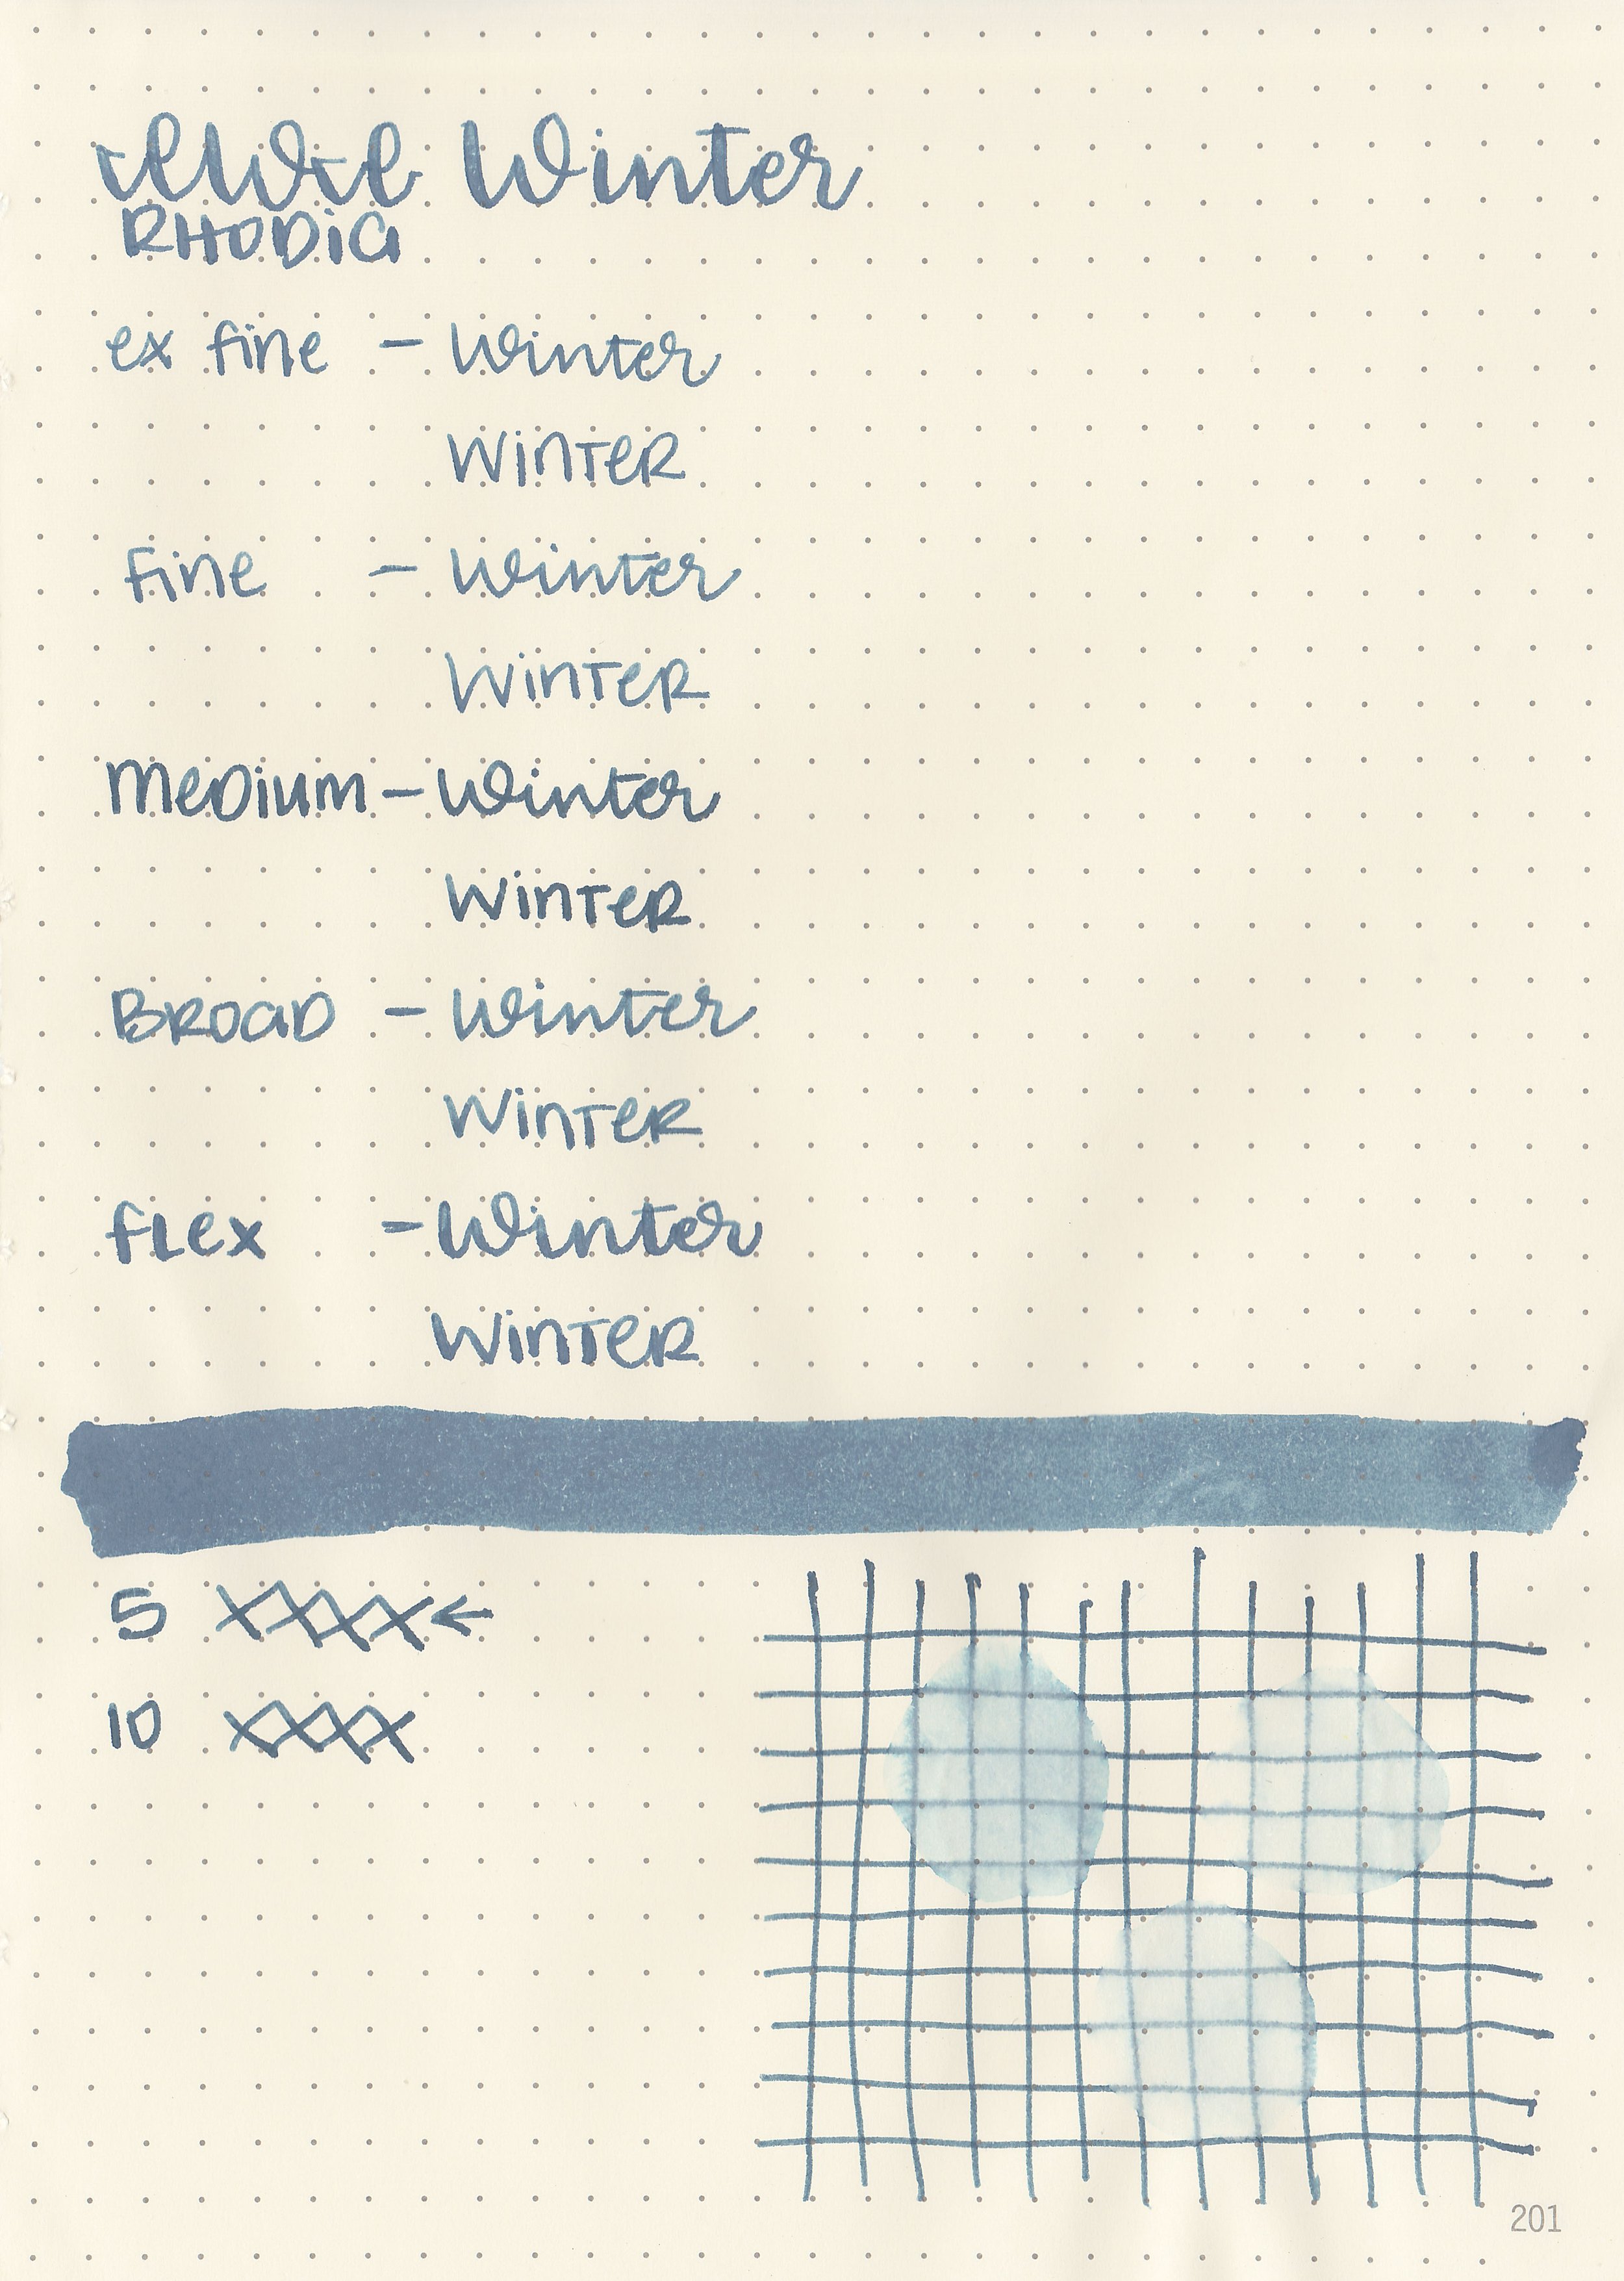 IWI Winter
RHODIA
ex fine - Winter
WinTeR
fine - Winter
WinTeR
MeDium - Winter
WinTeR
BROAD - Winter
WinTeR
fLex - Winter
WinTeR
5 XXXX ←
10 XXXX
201